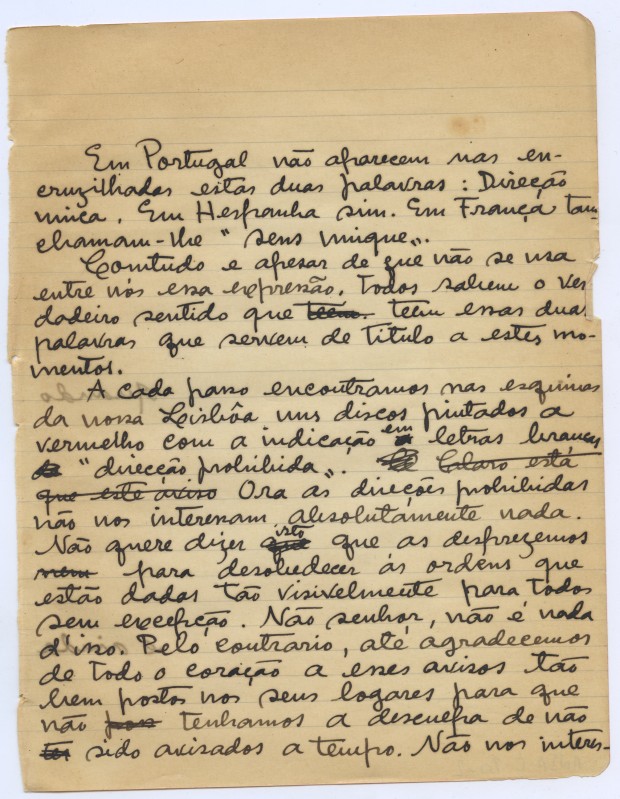 Em Portugal não aparecem nas en-
cruzilhadas estas duas palavras : Direcção
unica. Em Hespanha sim. Em França tam-
chamam-lhe "sens unique".
Comtudo e apesar de que não se usa
entre nós essa expressão. Todos sabem o ver
dadeiro sentido que teem. teem essas duas
palavras que servem de titulo a estes mo-
mentos.
A cada passo encontramos nas esquinas
da nossa Lisbôa uns discos pintados a
vermelho com a indicação em letras brancas
"direcção prohibida". Claro está
que este aviso Ora as direções prohibidas
não nos interessam absolutamente nada.
Não quere dizer isto que as desprezemos
nem para desobedecer ás ordens que
estão dadas tão visivelmente para todos
sem excepção. Não senhor, não é nada
d'isso. Pelo contrario, até agradecemos
de todo o coração a esses avisos tão
bem postos nos seus logares para que
não tenhamos a desculpa de não
ter sido avisados a tempo. Não nos interes-